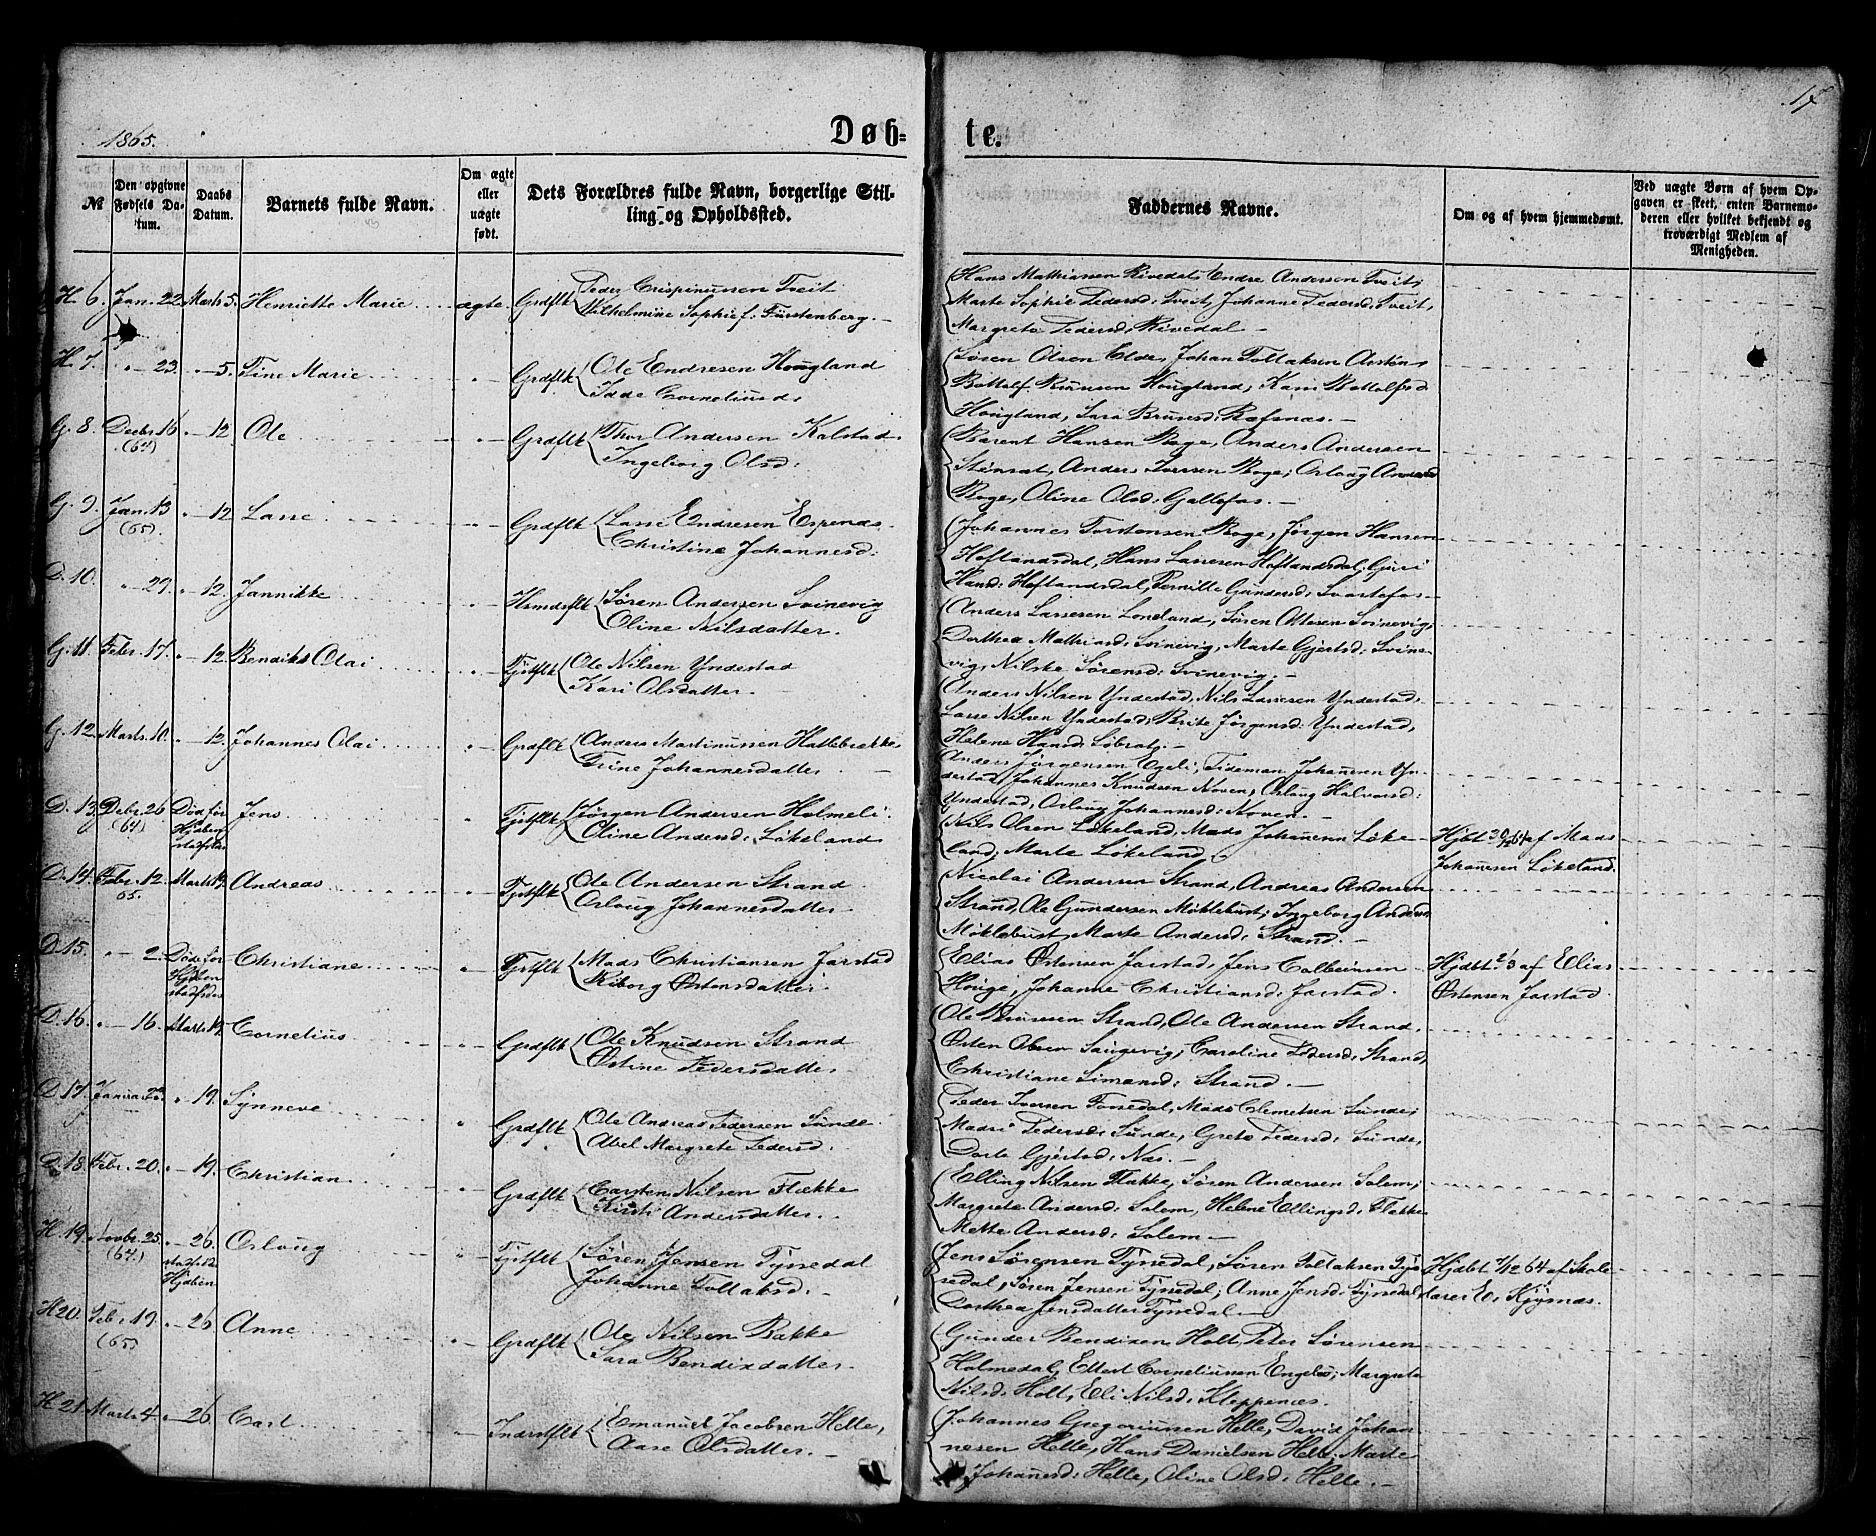 1865.
Døb=
te.
17
№
Den opgivne Fødsels Datum.
Daabs Datum.
Barnets fulde Navn.
Om ægte eller uægte født.
Dets Forældres fulde Navn, borgerlige Stilling og Opholdssted.
Faddernes Navne.
Om og af hvem hjemmedøbt.
Ved uægte Børn af hvem Opgaven er skeet, enten Barnemoderen eller hvilket bekjendt og troværdigt Medlem af Menigheden.
H. 6. Jan. 22. Marts 5. Henriette Marie ægte Grdflk Peder Crispinussen Tveit
Wilhelmine Sophie f. Fürstenberg.
Hans Mathiassen Rivedal, Endre Andersen Tveit,
Marte Sophie Pedersd: Tveit, Johanne Pedersd: Tveit,
Margrete Pedersd: Rivedal
H. 7. " 23. " 5. Tine Marie " Grdflk Ole Endresen Hougland
Idde Corneliusd.
Søren Olsen Elde, Johan Tollaksen
Bottolf Hougland, Kari Bottolfsd
Hougland, Sara Brusesd:
G. 8. Decbr. 16 (64) " 12 Ole " Grdflk Thor Andersen Kalstad
Ingeborg Olsd:
Barent Hansen Boge, Anders Andersen
Anders Iversen Boge, Orloug Andersd
Boge, Oline Olsd: Galtefos.
G. 9. Jan. 13 (65). " 12 Lasse " Grdflk Lasse Endresen Espenes
Christine Johannesd:
Johannes Torstensen Boge, Jørgen Hansen
Hoflandsdal, Hans Lassesen Hoflandsdal, Guri
Hansd: Hoflandsdal, Pernille Gundersd: Svartefos
D. 10. " 29. " 12. Jannikke " Hsmdsflk Søren Andersen Svinevig
Oline Nilsdatter.
Anders Lassesen Loneland, Søren Ottesen Svinevig,
Dorthea Mathiasd: Svinevig, Marte Gjertsd: Svine-
vig, Nilske Sørensd: Svinevig.
G. 11. Febr. 17. " 12. Bendikt Olai " Tjstflk Ole Nilsen Yndestad
Kari Olsdatter.
Anders Nilsen Yndestad, Nils Lassesen Yndestad,
Lasse Nilsen Yndestad, Brite Jørgensd: Yndestad,
Helene Hansd:
G. 12. Marts 10. " 12. Johannes Olai " Grdflk Anders Martinussen Hattebrække
Trine Johannesdatter.
Anders Jørgensen Egeli, Tideman Johannesen Yn-
destad, Johannes Knudsen Noven, Orloug Halvorsd:
Yndestad, Orloug Johannesd: Noven.
D. 13. Debr. 26 (64) Død før Hjdben stadfstes Jens " Tjstflk Jørgen Andersen Holmeli
Oline Andersd: Løkeland
Nils Olsen Løkeland, Mads Johannesen Løke-
land, Marte Løkeland,
Hjdbt 30/12 64 af Mads
Johannesen Løkeland.
D. 14. Febr. 12. 65. Marts 19. Andreas " Tjstflk Ole Andersen Strand
Orloug Johannesdatter
Nicolai Andersen Strand, Andreas Andersen
Strand, Ole Gundersen Møklebust, Ingeborg Andersd
Møklebust, Marte Andersd: Strand.
D. 15. " 2. Død før Hjdben stadfstes Christiane " Tjstflk Mads Christiansen Jarstad
Riborg Østensdatter.
Elias Østensen Jarstad, Jens Colbeinsen
Houge, Johanne Christiansd: Jarstad.
Hjdbt 2/3 af Elias
Østensen Jarstad.
D. 16. " 16. Marts 19. Cornelius " Grdflk Ole Knudsen Strand
Østine Pedersdatter.
Ole Strand, Ole Andersen Strand,
Østen Olsen Saugevig, Caroline Pedersd: Strand,
Christiane Simonsd: Strand.
D. 17. Januar " 19. Synneve " Grdflk Ole Andreas Pedersen Sunde
Abel Margrete Pedersd.
Peder Iversen Fossedal, Mads Clemetsen Sunde,
Madsi Pedersd: Sunde, Grete Pedersd: Sunde,
Dorte Gjertsd: Næs.
D. 18. Febr. 20. " 19. Christian " Grdflk Carsten Nilsen Flekke
Kirsti Andersdatter.
Elling Nilsen Flekke, Søren Andersen Solem,
Margrete Andersd: Solem, Helene Ellingsd: Flekke
Mette Andersd: Solem
H. 19. Novbr. 25. (64.) " 26. Hjdben Orloug " Tjstflk Søren Jensen Tyssedal
Johanne Tollaksd.
Jens Sørensen Tyssedal, Søren Tollaksen Tys-
sedal, Søren Jensen Tyssedal, Anne Jensd: Tyssedal
Dorthea Jensdatter Tyssedal.
Hjdbt 7/12 64 af Skole-
lærer E. Kyrnæs.
H. 20. Febr. 19. (65) " 26. Anne " Grdflk Ole Nilsen Bakke
Sara Bendixdatter.
Gunder Bendixen Holt, Peter Sørensen
Holmedal, Ellert Corneliussen Engebø, Margrete
Nilsd: Holt, Eli Nilsd: Kleppenes.
H. 21. Marts 4. " 26. Carl " Indrstflk Emanuel Jacobsen Helle,
Aase Olsdatter.
Johannes Gregoriussen Helle, David Johan-
nesen Helle, Hans Danielsen Helle, Marte
Johannesd: Helle, Oline Olsd: Helle.